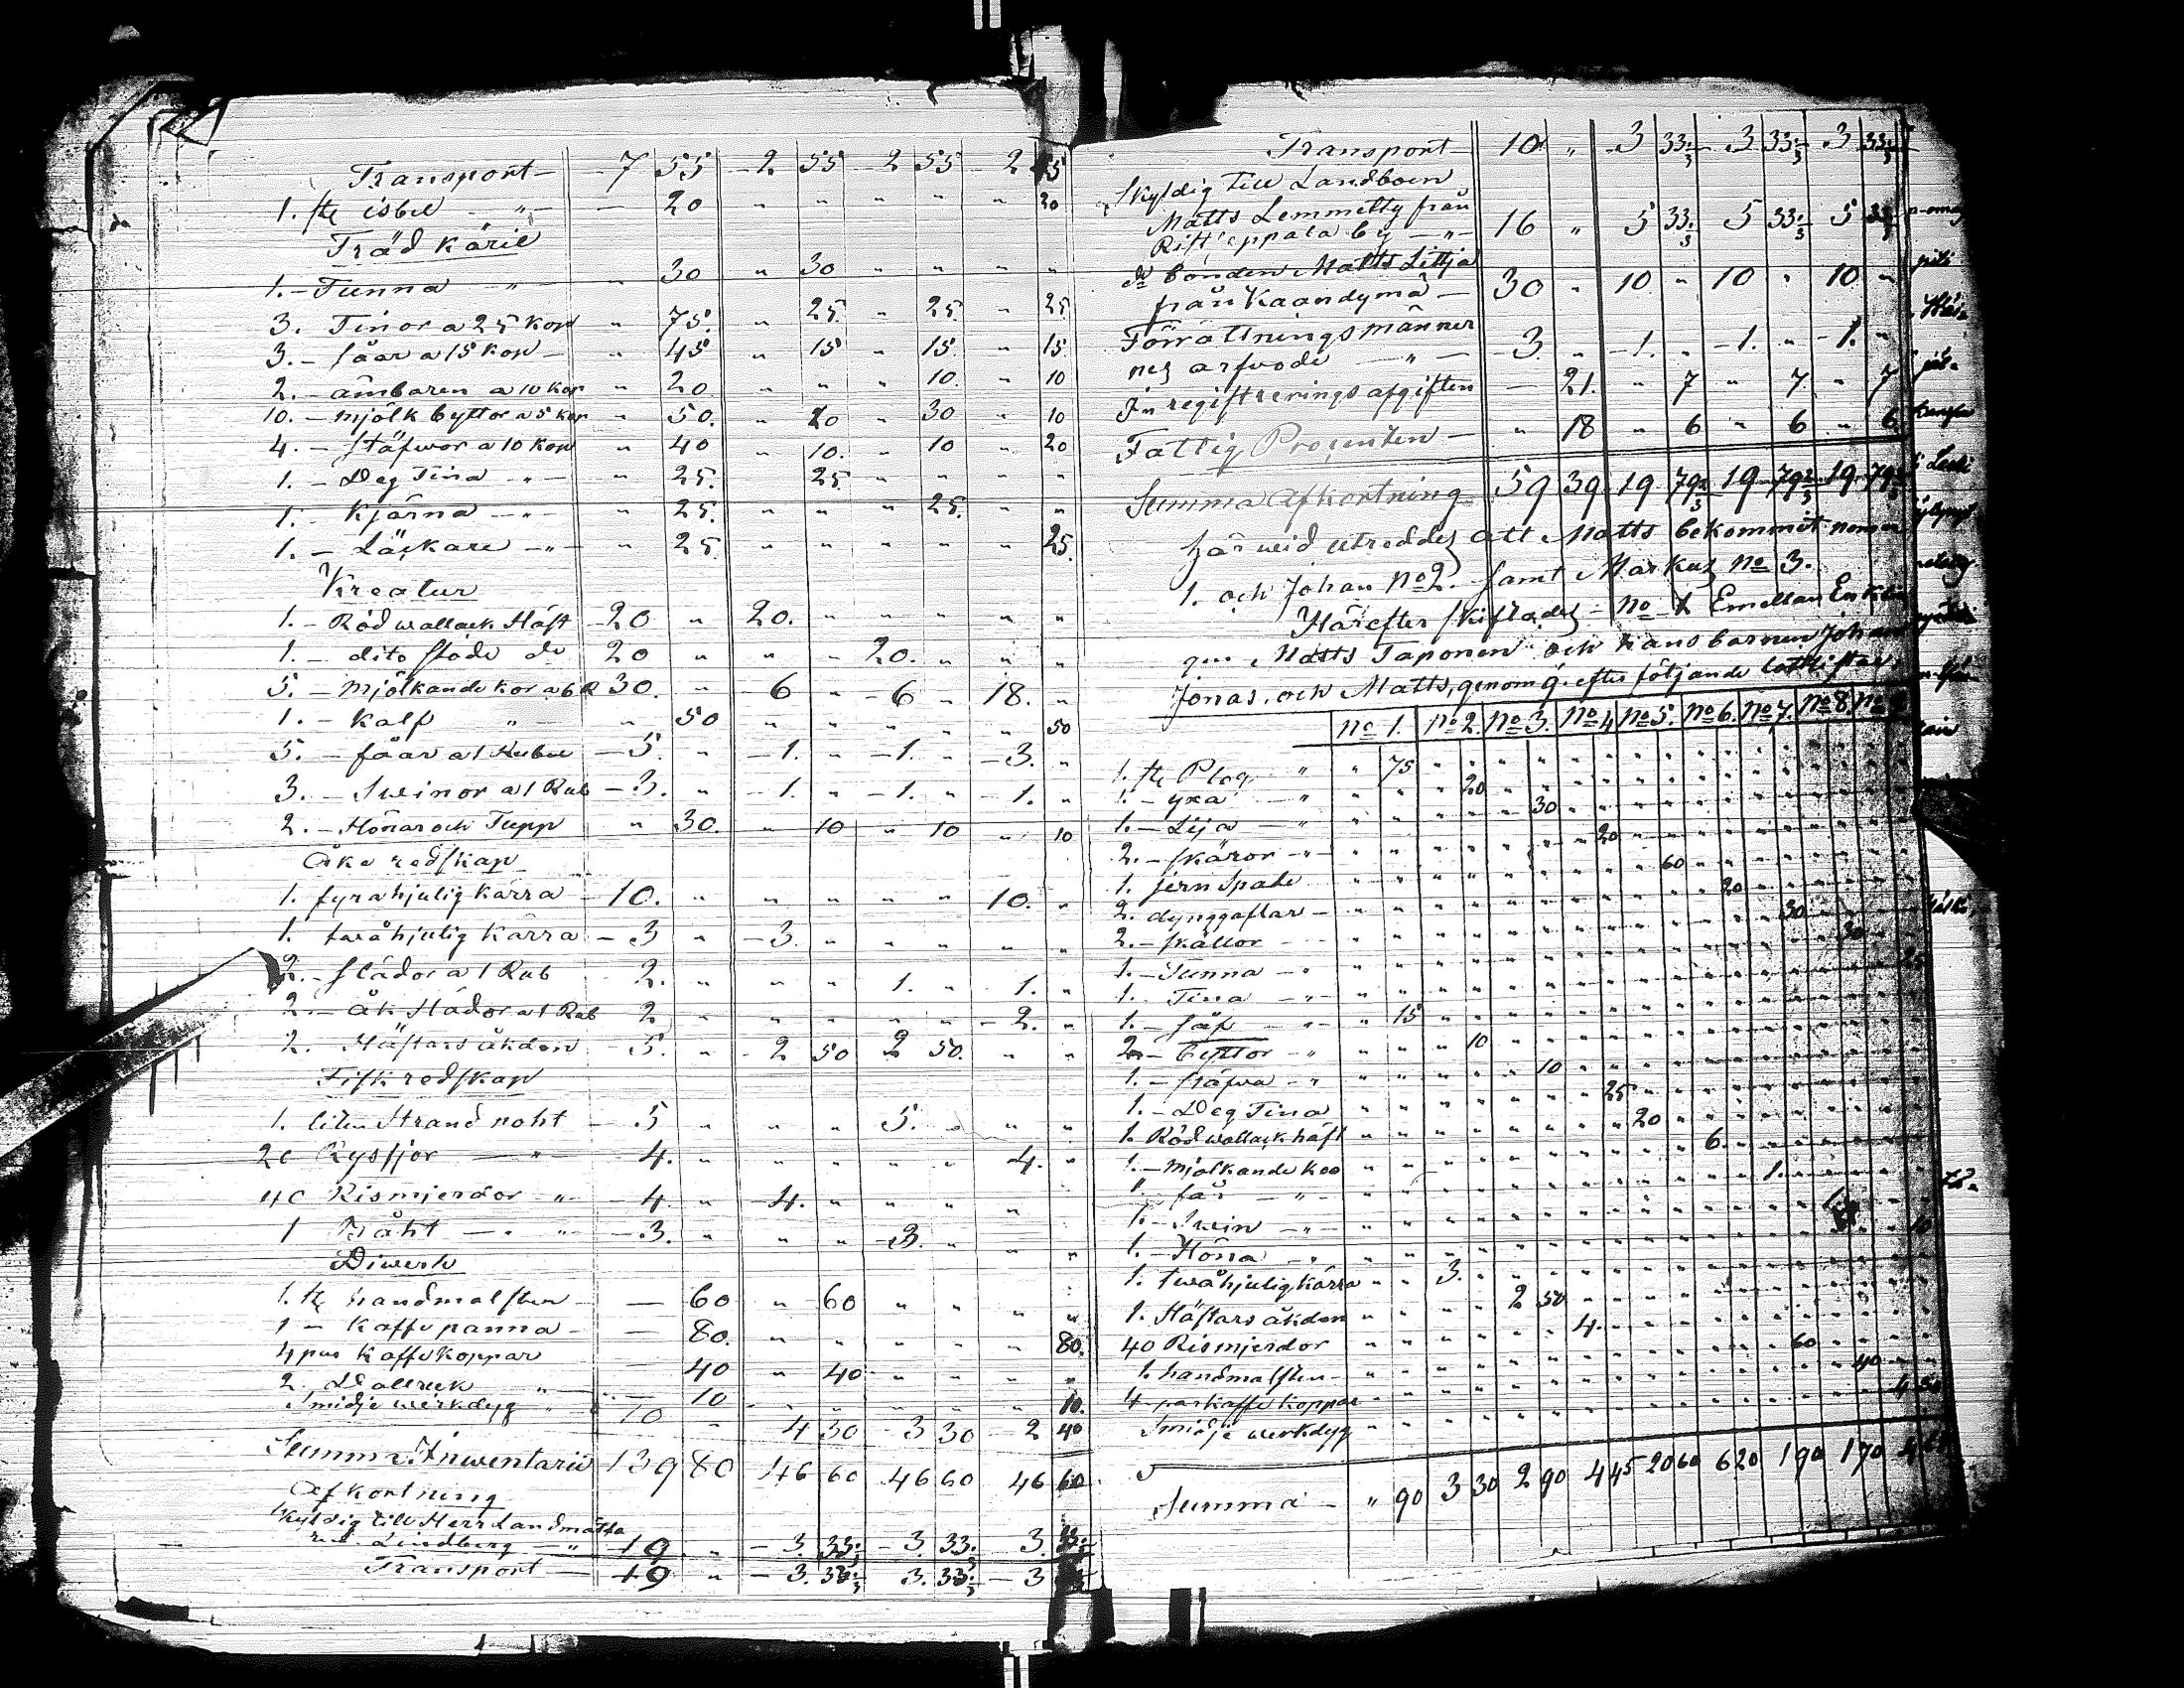 Transport — 7 55 2 55 2 55 2 55
1. st. isbil — " — 20 " " " " " 20
Träd Käril
1. – Tunna " — " 30 " 30 " " " "
3. Tinor a 25 kop " 75. " 25. " 25. " 25
3. – såar a 15 kop – " 45 " 15 " 15. " 15.
2. – ämbaren a 10 kop " 20 " " " 10. " 10
10. – mjölk byttor a 5 kop " 50. " 20 " 30 " 10
4. – stäfwor a 10 kop " 40 " 10. " 10 " 20
1. – Deg Tina – " – " 25. 25. " " " "
1. – Kjärna – " – " 25. " " " 25. " "
1. – Läskare – " – " 25 " " " " " 25.
Kreatur
1. – Röd wallack Häst – 20 " 20. " " " " "
1. – dito stode do 20 " " " 20. " " "
5. – Mjölkande kor a 6 R 30. " – 6 " – 6 " 18. "
1. – Kalf " " 50 " " " " " 50
5. – fåar a 1 Rubel – 5. " – 1. " – 1. " – 3. "
3. – Sweinor a 1 Rub – 3. " – 1. " – 1. " 1. "
2. – Hönar och Tupp " 30. " 10 " 10 " 10
Åke redskap
1. fyrahjulig kärra – 10. " " " " " 10. "
1. twåhjulig kärra – 3 " – 3. " " " " "
2. – slädor a 1 Rub 2. " " " 1. " 1. "
2. – åk slädor a 1 Rub 2 " " " " " – 2. "
2. Hästars åkdon – 5. " – 2 50 2 50. " "
Fisk redskap
1. liten Strand noht – 5 " " " 5. " " "
20 Rysjor — " — 4. " " " " " 4. "
40 Rismjerdor " – 4 " – 4. " " " "
1 Båht — " " – 3. " " " – 3. " " "
Diwerse
1. st. handmalsten – — 60 " 60 " " " "
1 – Kaffe panna – — 80. " " " " " 80.
4 par Kaffekoppar 40 " 40 " " " "
2 — 10 " " " " " 10.
Smidje werkdyg " 10 " 4 30 – 3 30 – 2 40
Summa Inwentarie 139 80 46 60 46 60 46 60
Afkortning
Skyldig till Herr Landmäta
ren Lindberg — " 10 " – 3. 33⅓ – 3. 33⅓ 3. 33⅓
Transport — 10 " – 3. 33⅓ 3. 33⅓ – 3
Transport — 10 " 3 33⅓ 3 33⅓ 3 33⅓
Skyldig till Landboen
Matts Lemmetty från
by – " – 16 " 5 33⅓ 5 33⅓ 5 33⅓
do bonden Matts Littja
från Kaandymä — 30 " 10 " 10 " 10 "
Förrättnings männer
nes arfwode — " — 3. " – 1. " – 1. " – 1. "
In registrerings afgiften — 21. " 7 " 7 " 7
Fattig Procenten — " 18 " 6 " 6 " 6
Summa Afkortning 59 39 19 79⅔ 19 79⅔ 19 79⅔
Här weid utreddes att Matts bekommit nomer
1. och Johan No 2. samt Markus No 3.
Härefter skiftades No 1 Emellan Enklin
gen Matts Taponen och hans barnen Johan
Jonas. och Matts, genom 9. efter följande
No 1. No 2. No 3. No 4 No 5. No 6. No 7. No 8. No 9
1. st. Plog " " 75
1. – yxa — " 20
1. – Lija — " 30
2. – skäror – " – 20
1. jern Spade 60
2. dynggaflar – 20
2. – skållor 30
1. – Tunna – " 30
1. Tina – " – 25
1. – såf – " – " 15
2 – byttor – " 10
1. – stäfwa – " 10
1. – Deg Tina 25
1. Röd wallack häst 20
1. – Mjölkande koo 6.
1. får – " – 1.
1. – Swin – " –
1. – Höna – " 10
1. twåhjulig kärra 3.
1. Hästars åkdon 2 50
40 Rismjerdor 4.
1. handmalsten – 60
4 par kaffe koppar 40
Smidje werkdyg 4 30
Summa – " 90 3 30 2 90 4 45 20 60 6 20 1 90 1 70 4 65